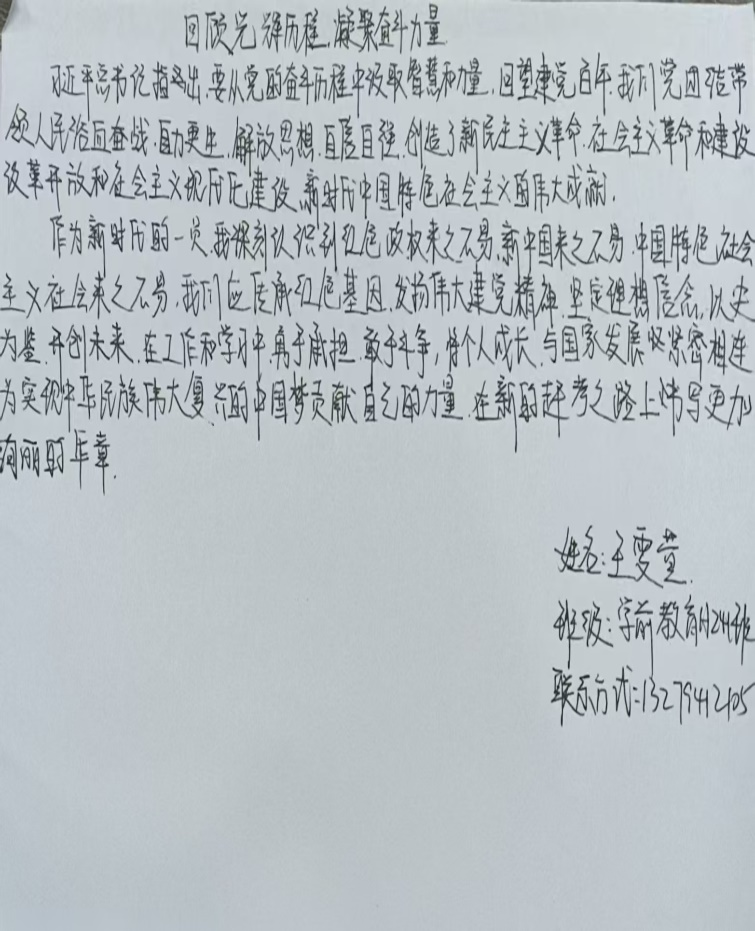 回顾光辉历程,凝聚奋斗力量
习近平总书记指出,要从党的奋斗历程中汲取智慧和力量,回望建党百年,我们党团结带
领人民浴血奋战,自力更生,解放思想,自信自强,创造了新民主主义革命,社会主义革命和建设
改革开放和社会主义现代化建设,新时代中国特色社会主义的伟大成就.
作为新时代的一员,我深刻认识到红色政权来之不易,新中国来之不易,中国特色社会
主义社会来之不易,我们应传承红色基因,发扬伟大建党精神,坚定理想信念,以史
为鉴,开创未来,在工作和学习中勇于承担,敢于斗争,将个人成长,与国家发展紧密相连
为实现中华民族伟大复兴的中国梦贡献自己的力量,在新的赶考之路上书写更加
绚丽的华章.
姓名:王雯萱
班级:学前教育H24班
联系方式:13279412105